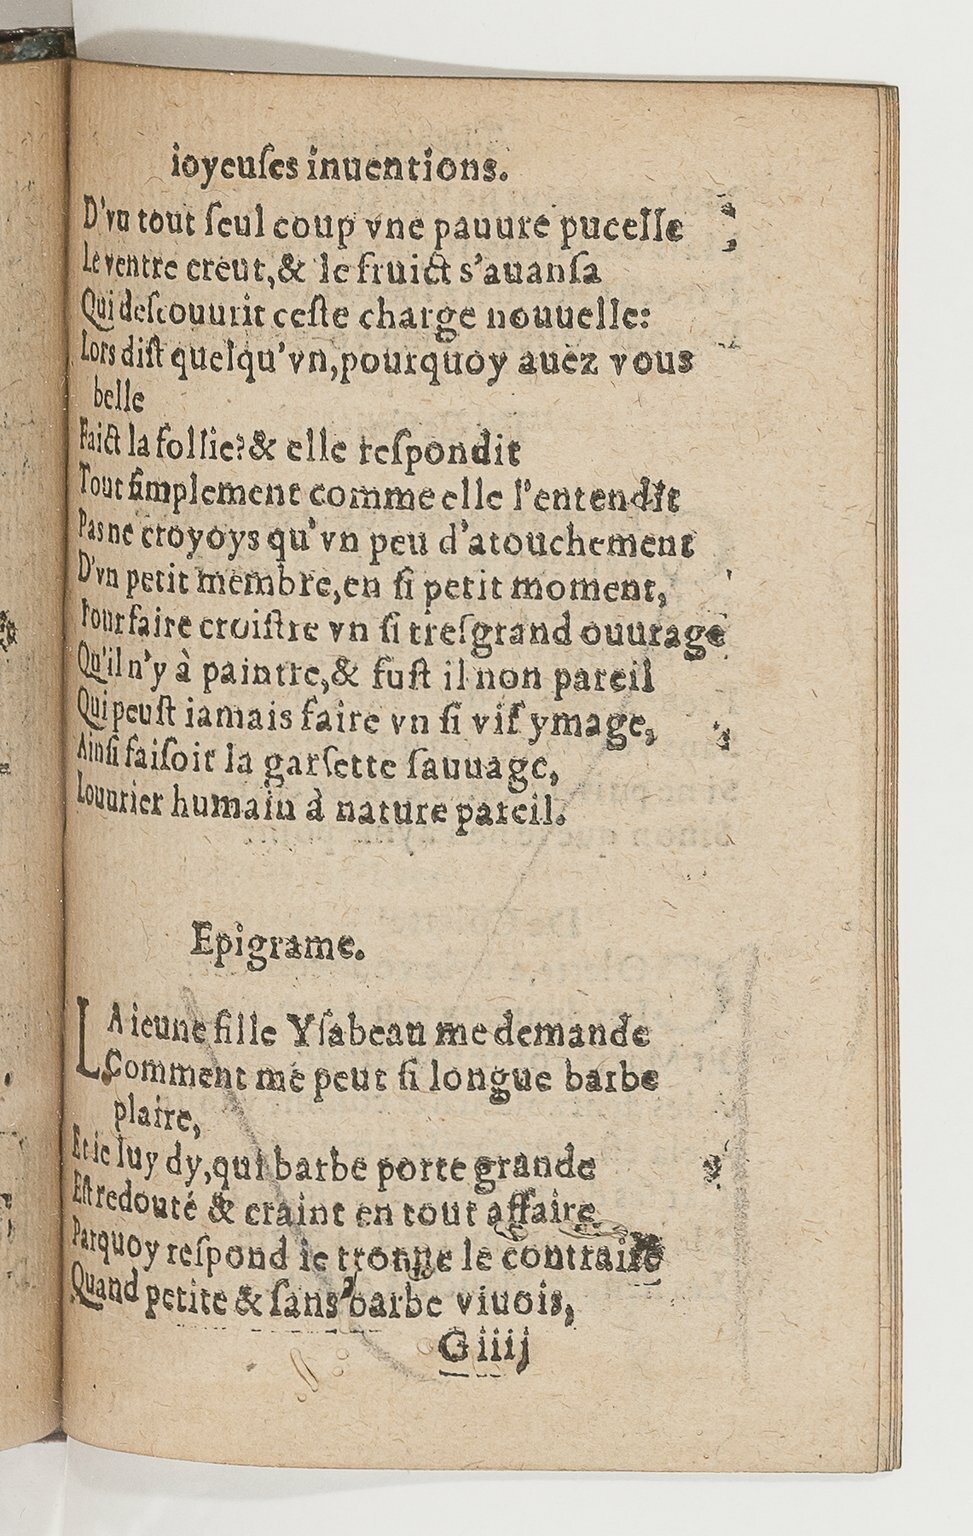 ioyeuſes inuentions.
D'vn tout ſeul coup vne pauure pucelle
Le ventre creut,& le fruict s'auanſa
Qui deſcouurit ceſte charge nouuelle:
Lors diſt quelqu'vn,pourquoy auez vous
belle
Faict la follie?& elle reſpondit
Tout ſimplement comme elle l'entendit
Pas ne croyoys qu'vn peu d'atouchement
D'vn petit membre,en ſi petit moment,
Pour faire croiſtre vn ſi treſgrand ouurage
Qu'il n'y à paintre,& fuſt il non pareil
Qui peuſt iamais faire vn ſi vif ymage,
Ainſi faiſoit la garſette ſauuage,
Louurier humain à nature pareil.
Epigrame.
LA ieune fille Yſabeau me demande
Comment me peut ſi longue barbe
plaire,
Et ie luy dy,qui barbe porte grande
Eſt redouté & craint en tout affaire
Parquoy reſpond ie tronue le contraire
Quand petite & ſans barbe viuois,
G iiij